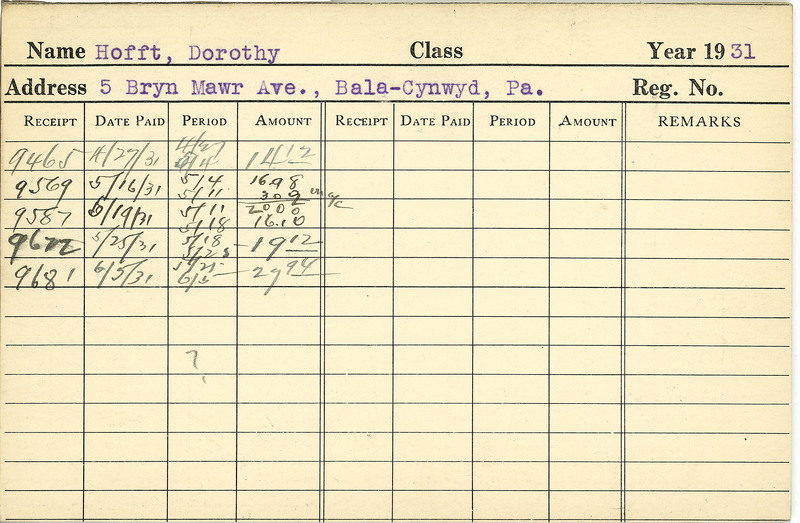 Name Hofft, Dorothy Class Year 1931
Address 5 Bryn Mawr Ave., Bala-Cynwyd, Pa. Reg. No.
RECEIPT DATE PAID PERIOD AMOUNT RECEIPT DATE PAID PERIOD AMOUNT REMARKS
4/27
9465 4/27/31 5/4 14 12
9569 5/16/31 5/4 16.98
5/11 3 02 on a/c
9587 5/19/31 5/11 20 00
5/18 16.10
9622 5/25/31 5/18 19 12
5/25
9681 6/5/31 5/25 27 94
6/5
?